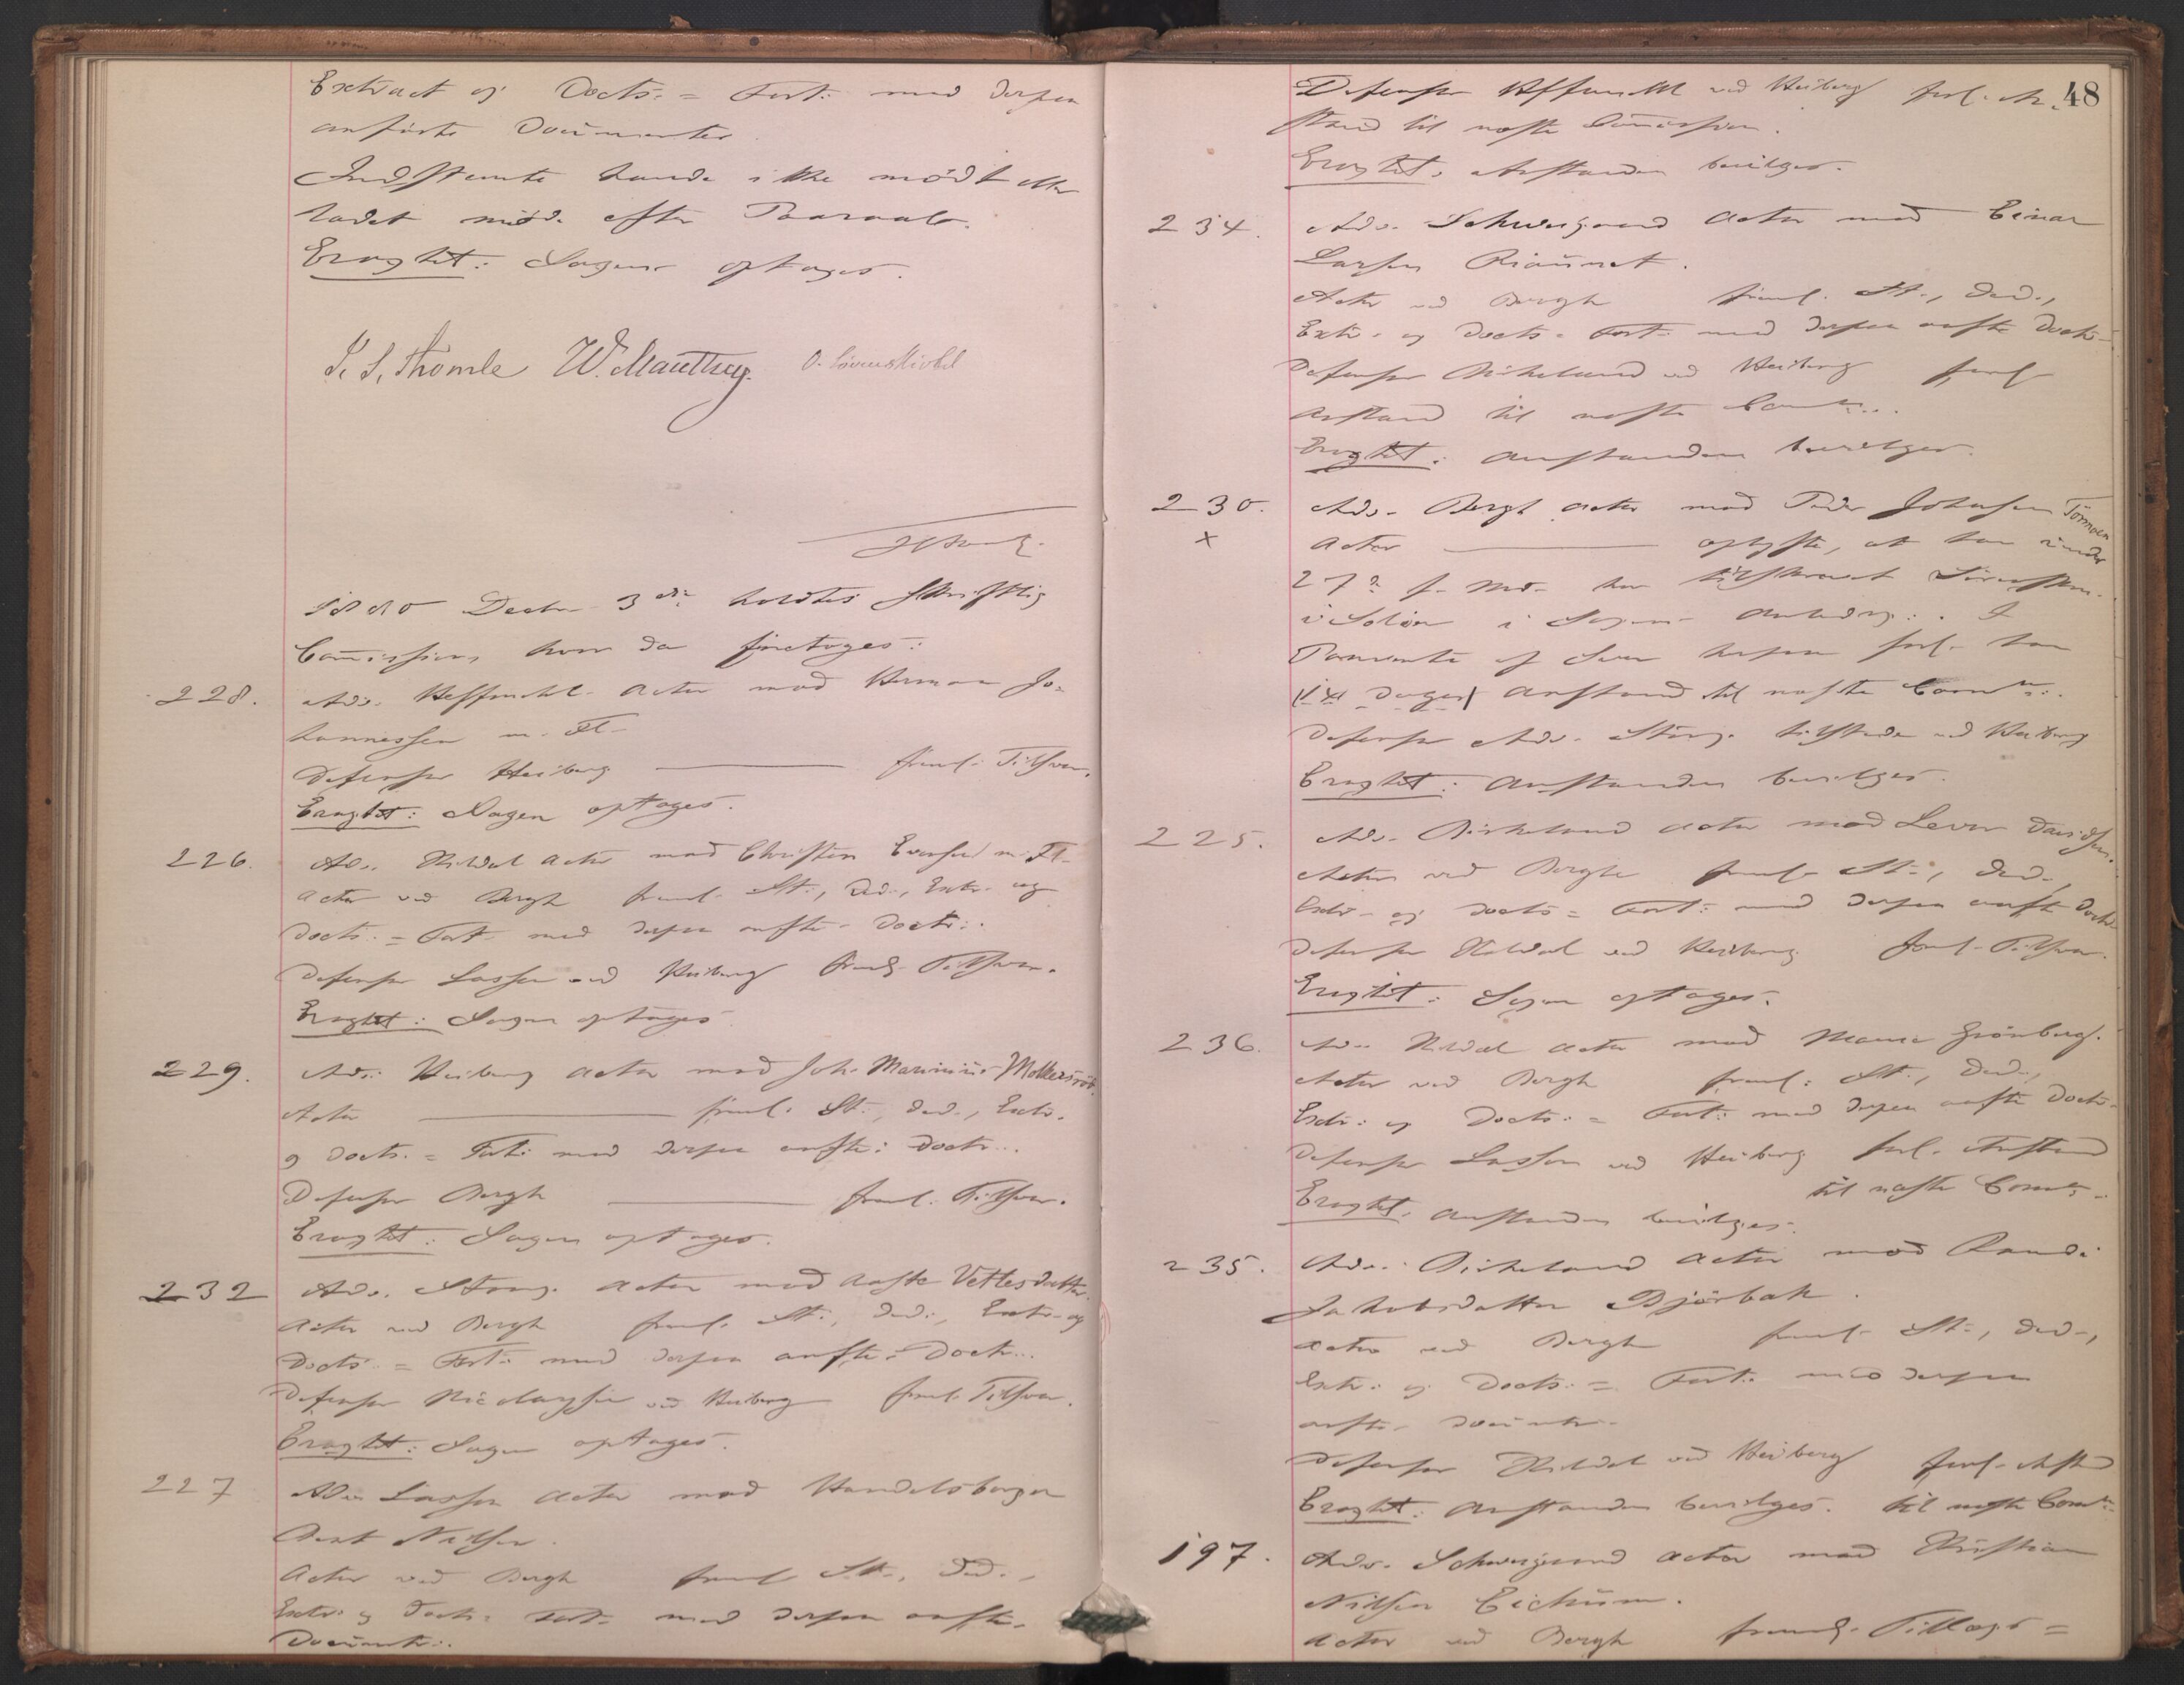 Extract og Docts: = Fort: med derpaa
anførte Documenter.
Indstevnte havde ikke mødt eller
ladet møde efter Paaraab.
Eragtet: Sagen optages.
I. S. Thomle W. Manthey. O. Løvenskiold
1880 Decbr 3die holdtes Skriftlig
Commission, hvor da foretoges:
228. Adv. Heffermehl Actor mod Herman Jo=
hannessen m. Fl.
Defensor Heiberg ——— freml. Tilsvar.
Eragtet: Sagen optages.
226. Adv. Kildal Actor mod Christen Evensen m. Fl.
Actor ved Bergh freml. St., Ded., Extr. og
Docts. = Fort. med derpaa anførte Doctr.
Defensor Lasson ved Heiberg freml. Tilsvar.
Eragtet: Sagen optages.
229. Adv. Heiberg Actor mod Joh. Marinius
Actor ——— freml. St., Ded., Extr.
og Docts. = Fort: med derpaa anførte Doctr..
Defensor Bergh ——— freml. Tilsvar.
Eragtet: Sagen optages.
232 Adv. Strøm Actor mod Aaste Vetlesdatter.
Actor ved Bergh freml. St., Ded., Extr. og
Docts. = Fort: med derpaa anførte Doctr..
Defensor Nicolaysen ved Heiberg freml. Tilsvar.
Eragtet: Sagen optages.
227 Adv. Lasson Actor mod Handelsborger
Bert Nilsen.
Actor ved Bergh freml. St., Ded.,
Extr. og Docts. = Fort. med derpaa anførte
Documenter.
48
Defensor Heffermehl ved Heiberg forl. An=
stand til næste Commission.
Eragtet: Anstanden bevilges.
234. Adv. Schweigaard Actor mod Einar
Larsen
Actor ved Bergh freml. St., Ded.,
Extr. og Docts. = Fort: med derpaa anførte Doctr.
Defensor Birkeland ved Heiberg forl.
Anstand til næste Comm..
Eragtet: Anstanden bevilges.
230. Adv. Bergh Actor mod Peder Johnsen
x Actor ——— oplyste, at han under
27de f. Md. har tilskrevet
i Solør i Sagens Anledng: I
Paavente af Svar herpaa forl. han
(14 Dages) Anstand til næste Comm:
Defensor Adv. tilstede ved Heiberg
Eragtet: Anstanden bevilges.
225. Adv. Birkeland Actor mod Lever Davidsen.
Actor ved Bergh freml. St., Ded.,
Extr. og Docts. = Fort: med derpaa anførte Doctr.
Defensor Kildal ved Heiberg freml. Tilsvar.
Eragtet: Sagen optages.
236. Adv. Kildal Actor mod Maria Grønberg.
Actor ved Bergh freml. St., Ded.,
Extr. og Docts: = Fort: med derpaa anførte Doctr.
Defensor Lasson ved Heiberg forl. Anstand
til næste Comm.
Eragtet: Anstanden bevilges.
235. Adv. Birkeland Actor mod Randi
Jakobsdatter Bjørbak.
Actor ved Bergh freml. St., Ded.,
Extr. og Docts. = Fort: med derpaa
anførte Documenter.
Defensor Kildal ved Heiberg forl. Anstand
Eragtet: Anstanden bevilges. til næste Comm:
197. Adv. Schweigaard Actor mod Kristian
Nilsen
Actor ved Bergh freml. Tillægs=